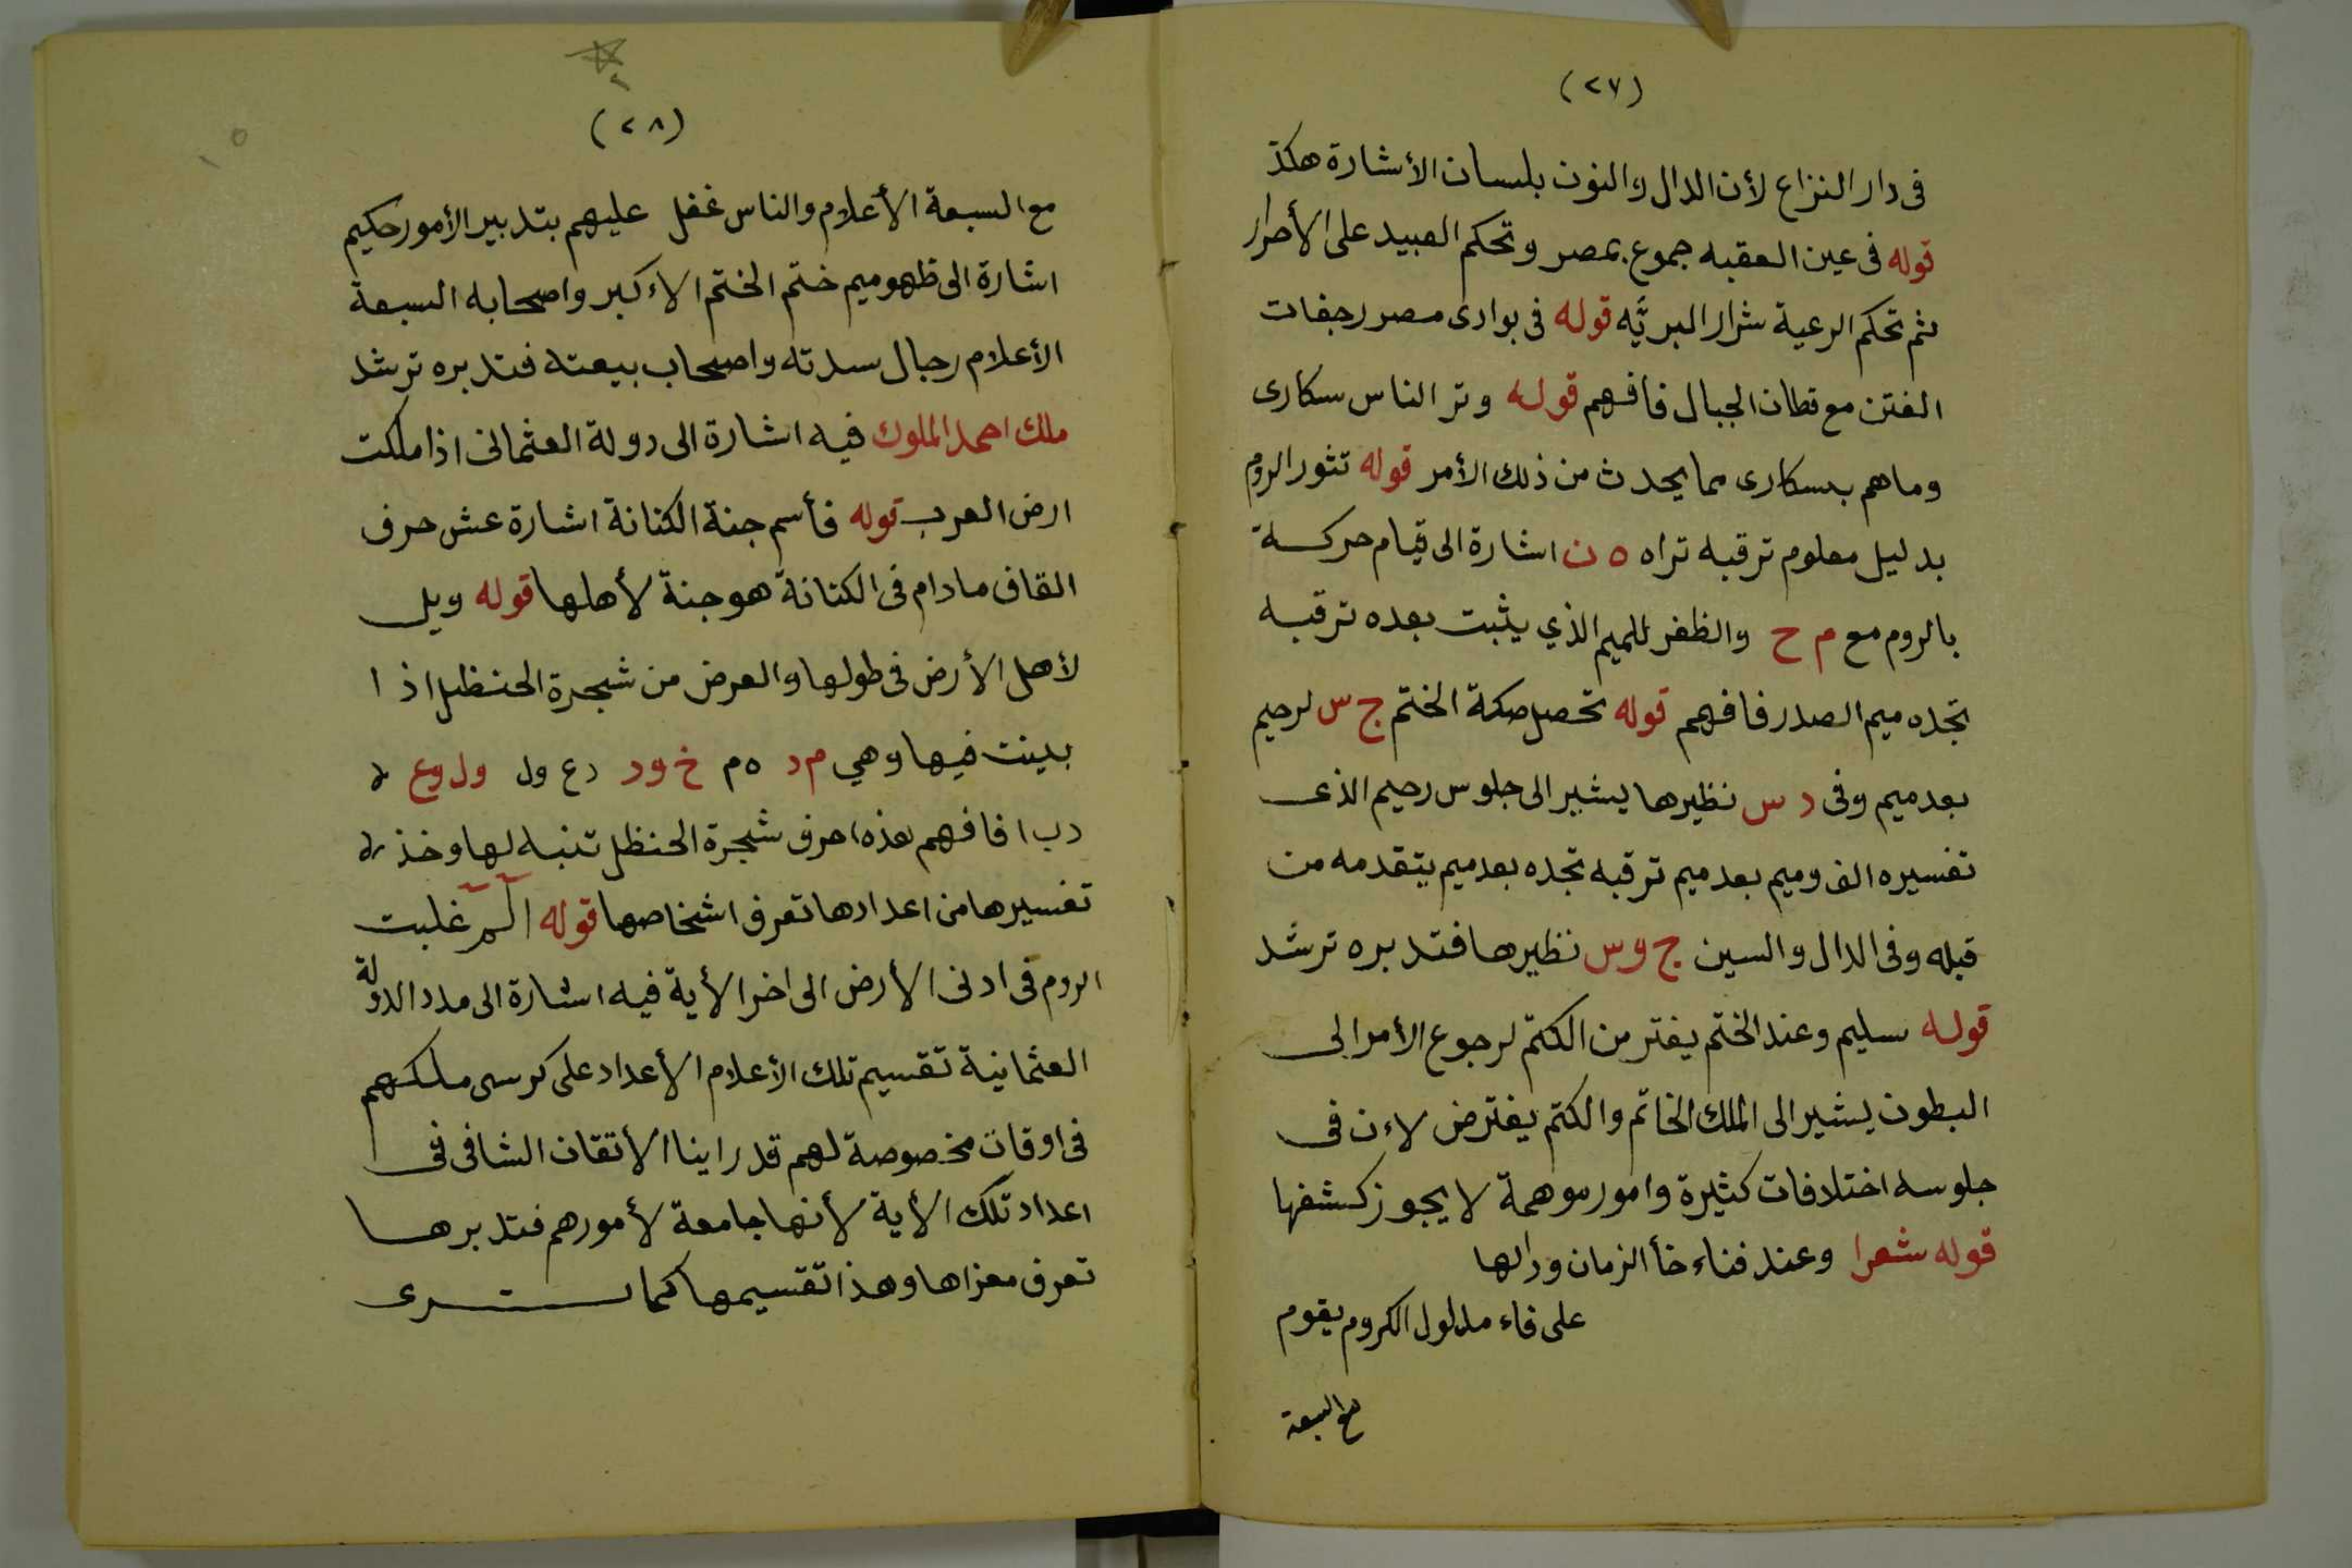 (٢٧)
فى دار النزاع لأن الدال والنون بلسان الأشارة هكذ
قوله فى عين العقبه جموع بمصر وتحكم العبيد على الأحرار
ثم تحكم الرعية شرار البريَّه قوله فى بوادى مصر رجفات
الفتن مع قطان الجبال فافهم قوله وتر الناس سكارى
وماهم بسكارى مما يحدث من ذلك الأمر قوله تثور الروم
بدليل معلوم ترقبه تراه ه ن اشارة الى قيام حركة
بالروم مع م ح والظفر للميم الذي يثبت بعده ترقبه
تجده ميم الصدر فافهم قوله تحصل صكة الختم ج س لرحيم
بعد ميم وفى د س نظيرها يشير الى جلوس رحيم الذى
تفسيره الف وميم بعد ميم ترقبه تجده بعد ميم يتقدمه من
قبله وفى الدال والسين ج وس نظيرها فتدبره ترشد
قوله سليم وعند الختم يفتر من الكتم لرجوع الأمر الى
البطون يشير الى الملك الخاتم والكتم يفترض لاءن فى
جلوسه اختلافات كثيرة وامور موهمة لا يجوز كشفها
قوله شعرا وعند فناء خأ الزمان ودالها
على فاء مدلول الكروم يقوم
مع السبعة
(٢٨)
مع السبعة الأعلام والناس غفل عليهم بتدبير الأمور حكيم
اشارة الى ظهوميم ختم الختم الاءكبر واصحابه السبعة
الأعلام رجال سدته واصحاب بيعته فتدبره ترشد
ملك احمد الملوك فيه اشارة الى دولة العثمانى اذا ملكت
ارض العرب قوله فأسم جنة الكنانة اشارة عش حرف
القاف مادام فى الكنانة هو جنة لأهلها قوله ويل
لأهل الأرض فى طولها والعرض من شجرة الحنظل اذا
بدينت فيها وهي م د ه م خ و د د ع ول ول وع لا
د ب ا فافهم هذه احرف شجرة الحنظل تنبه لها وخذ لا
تفسيرها من اعدادها تعرف اشخاصها قوله الم غلبت
الروم فى ادنى الأرض الى اخر الأية فيه اشارة الى مدد الدولة
العثمانية تقسيم تلك الأعلام الأعداد على كرسى ملكهم
فى اوقات مخصوصة لهم قد راينا الأتقان الشافى فى
اعداد تلك الأية لأنها جامعة لأمورهم فتدبرها
تعرف معزاها وهذا تقسيمها كما ترى